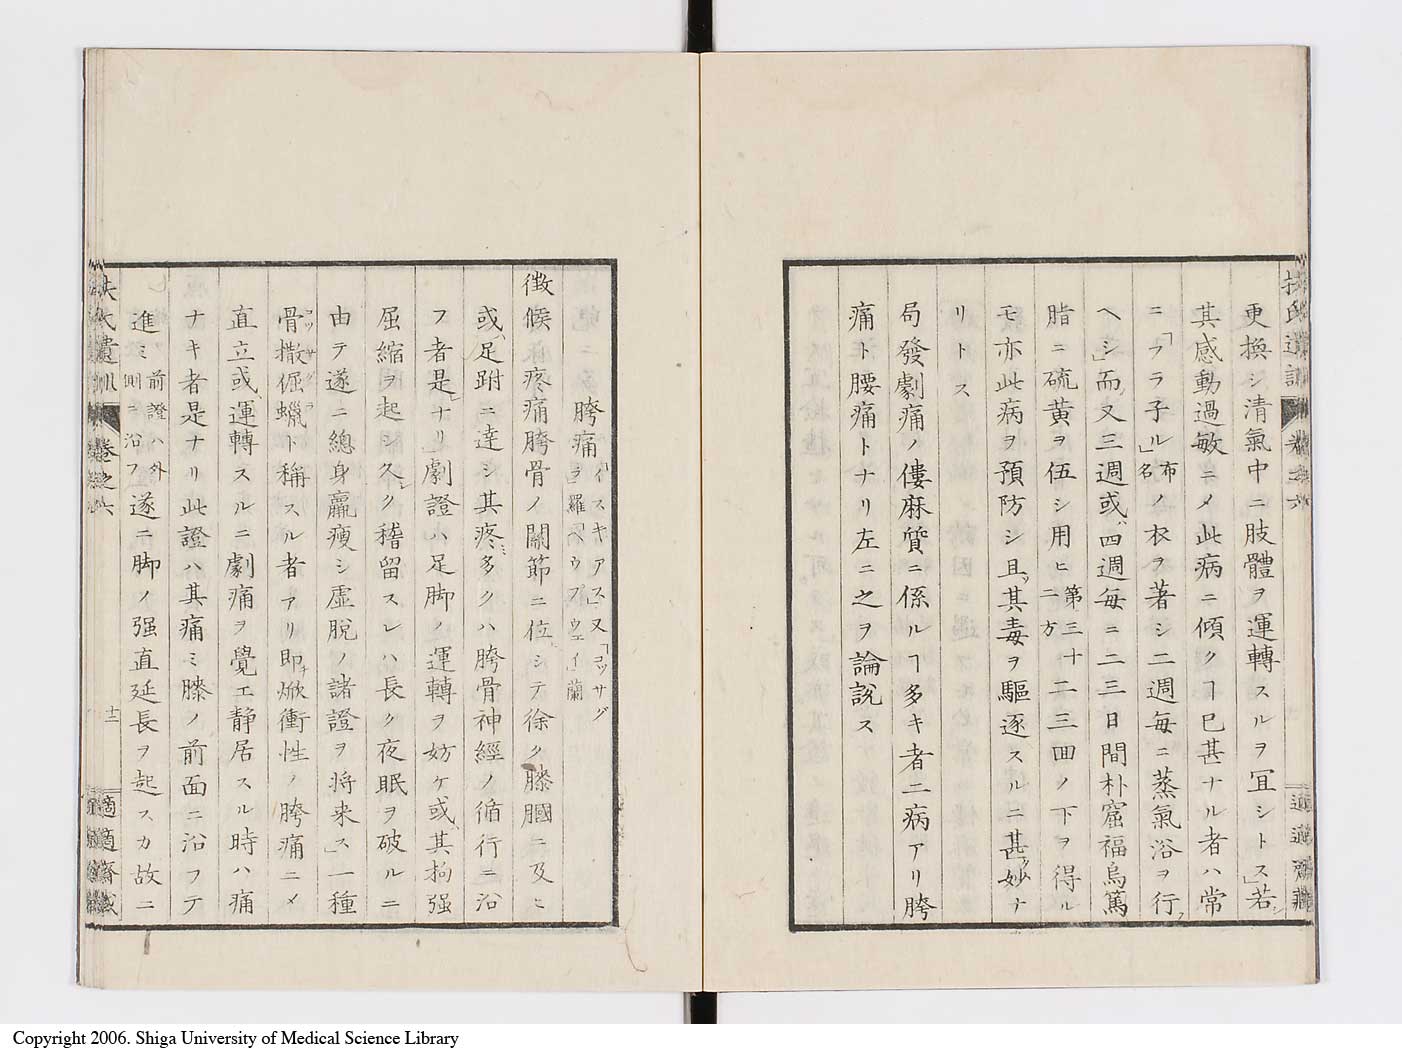 扶氏遺訓 卷之六 適適齋藏
更換シ清氣中ニ肢體ヲ運轉スルヲ冝シトス」若シ
其感動過敏ニメ此病ニ傾クヿ已甚ナル者ハ常
ニ「フラ子ル」布名ノ衣ヲ著シ二週毎ニ蒸氣浴ヲ行フ
ヘシ」而メ又三週或ハ四週毎ニ二三日間朴窟福烏篤
脂ニ硫黄ヲ伍シ用ヒ第三十二方二三四ノ下ヲ得ル
モ亦此病ヲ預防シ且ツ其毒ヲ驅逐スルニ甚タ妙ナ
リトス
局發劇痛ノ僂麻質ニ係ルヿ多キ者二病アリ胯
痛ト腰痛トナリ左ニ之ヲ論説ス
胯痛「イスキアス」又「コッサグラ」羅「ヘウプウェイ」蘭
徴候疼痛胯骨ノ關節ニ位シテ徐ク膝膕ニ及ヒ
或ハ足跗ニ達シ其疼ミ多クハ胯骨神經ノ循行ニ沿
フ者是ナリ」劇證ハ足脚ノ運轉ヲ妨ケ或ハ其拘强
屈縮ヲ起シ久シク稽留スレハ長ク夜眠ヲ破ルニ
由テ遂ニ總身羸瘦シ虚脱ノ諸證ヲ将来ス」一種
骨撒倔蠟コッサグラト稱スル者アリ即チ焮衝性ノ胯痛ニメ
直立或ハ運轉スルニ劇痛ヲ覺エ静居スル時ハ痛
ナキ者是ナリ此證ハ其痛ミ膝ノ前面ニ沿フテ
進ミ前證ハ外側ニ沿フ遂ニ脚ノ强直延長ヲ起スカ故ニ
扶氏遺訓 卷之六 十二 適適齋藏
Copyright 2006. Shiga University of Medical Science Library